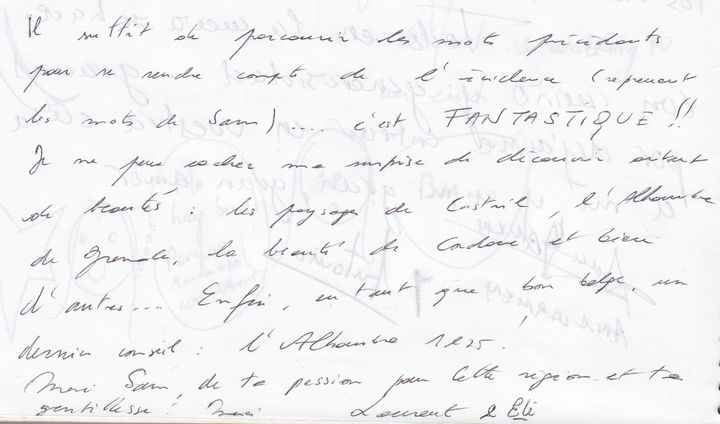 Il suffit de parcourir les mots précédents
pour se rendre compte de l'évidence (reprenant
les mots de Sam).... c'est FANTASTIQUE !!
Je ne peux cacher ma surprise de découvrir autant
de beautés : les paysages de Castril, l'Alhambra
de Grenade, la beauté de Cordoue et bien
d'autres... Enfin, en tant que bon belge, un
dernier conseil : l'Alhambra 1925.
Merci Sam, de ta passion pour cette région et ta
gentillesse ! Merci Laurent & Eli